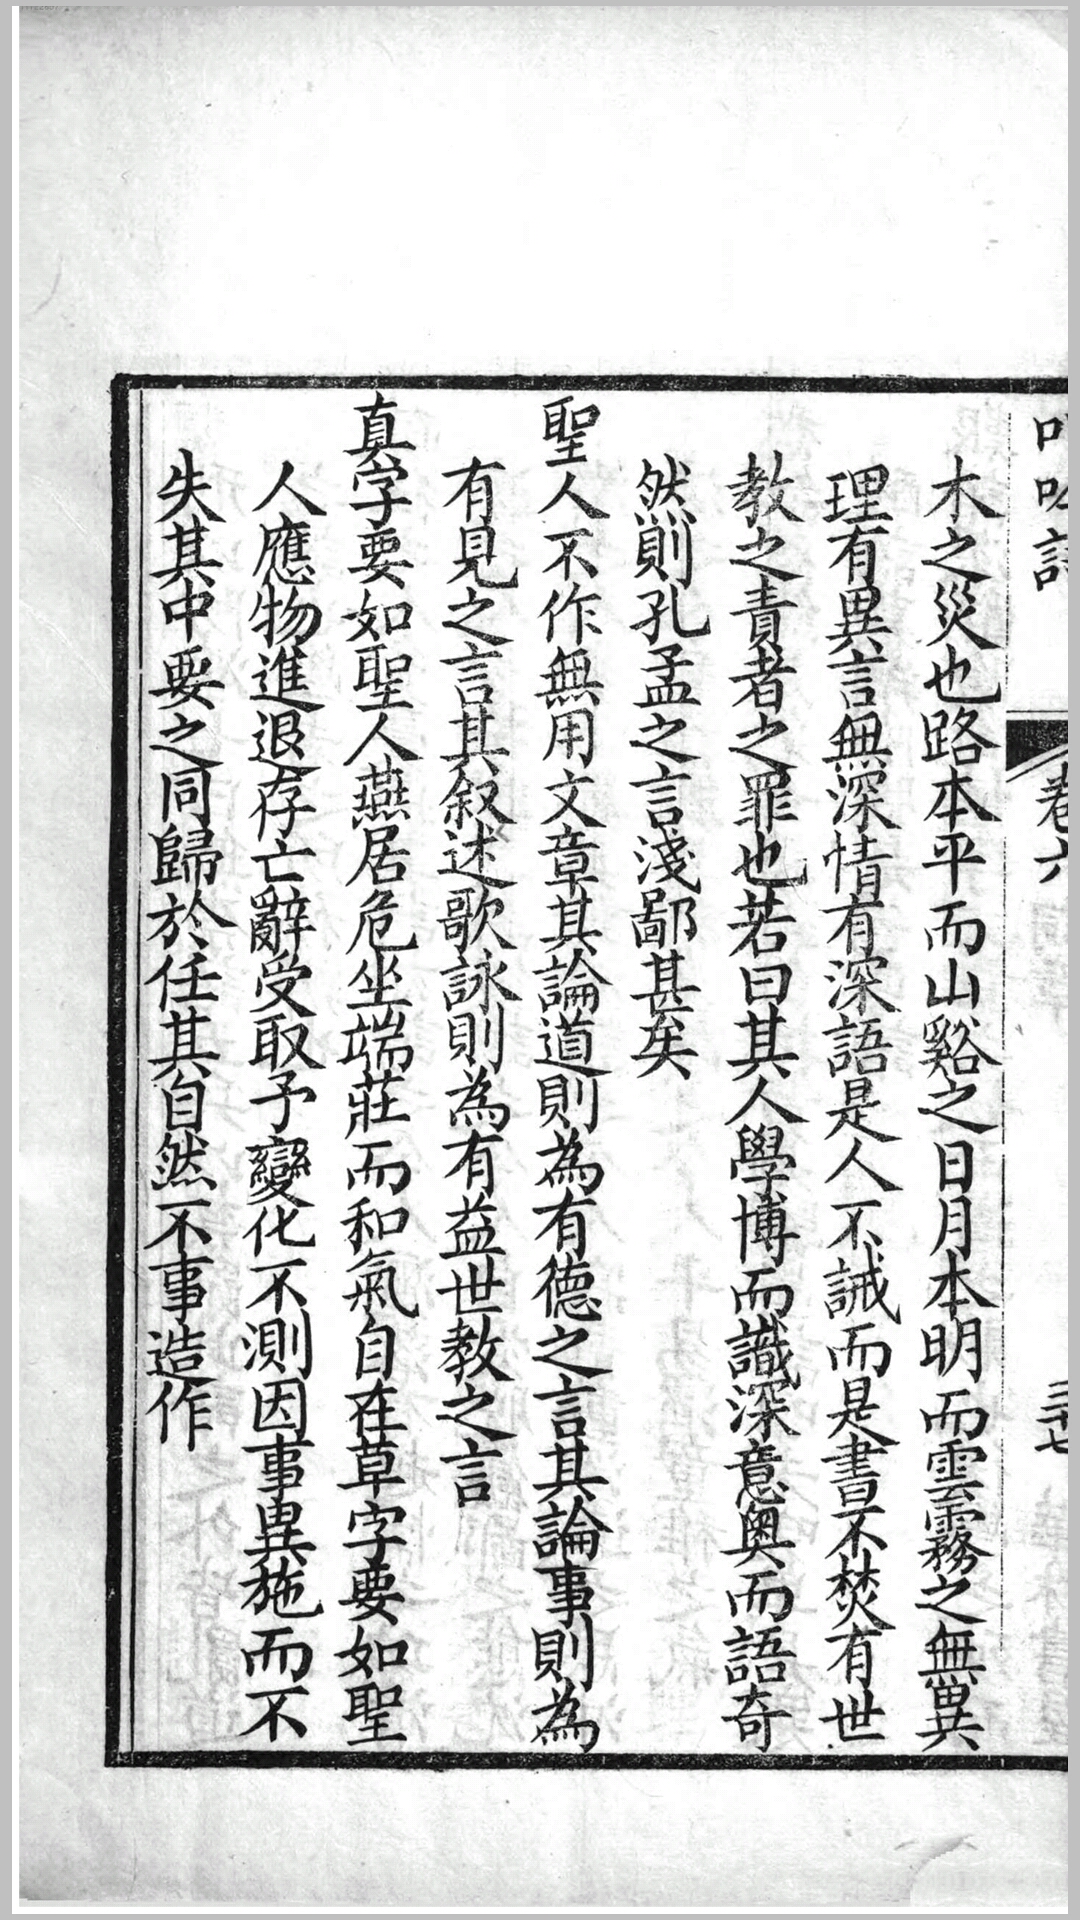 呻吟語
卷六
三十七
木之災也路本平而山谿之日月本明而雲霧之無異
理有異言無深情有深語是人不誡而是書不焚有世
教之責者之罪也若曰其人學博而識深意奧而語奇
然則孔孟之言淺鄙甚矣
聖人不作無用文章其論道則為有德之言其論事則為
有見之言其敘述歌詠則為有益世教之言
真字要如聖人燕居危坐端莊而和氣自在草字要如聖
人應物進退存亡辭受取予變化不測因事異施而不
失其中要之同歸於任其自然不事造作